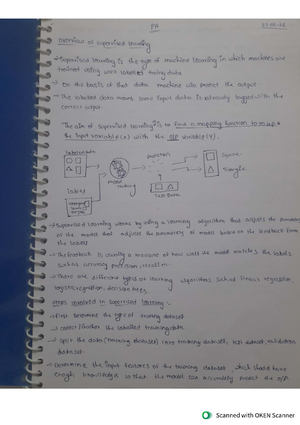 PA
Overview of supervised learning
→ Supervised learning is the type of machine learning in which machines are
trained using well labelled training data
→ On the basis of that data machine will predict the output
→ The labelled data means some input data is already tagged with the
correct output
The aim of supervised learning is to find a mapping function to map
the input variable (x) with the o/p variable (y).
labelled data
prediction
Square
Triangle
model training
Labels
Test data
→ Supervised learning works by using a learning algorithm that adjusts the parameters
of the model that adjust the parameters of model based on the feedback from
the labels
→ The feedback is usually a measure of how well the model matches the labels
such as accuracy, precision, recall
→ There are different types of learning algorithms such as linear regression
logistic regression, decision trees
Steps involved in supervised learning :-
→ First determine the type of training dataset
→ collect/Gather the labelled training data
→ split the data (training dataset) into training dataset, test dataset, validation
dataset
→ Determine the input features of the training dataset, which should have
enough knowledge so that the model can accurately predict the o/p
Scanned with OKEN Scanner